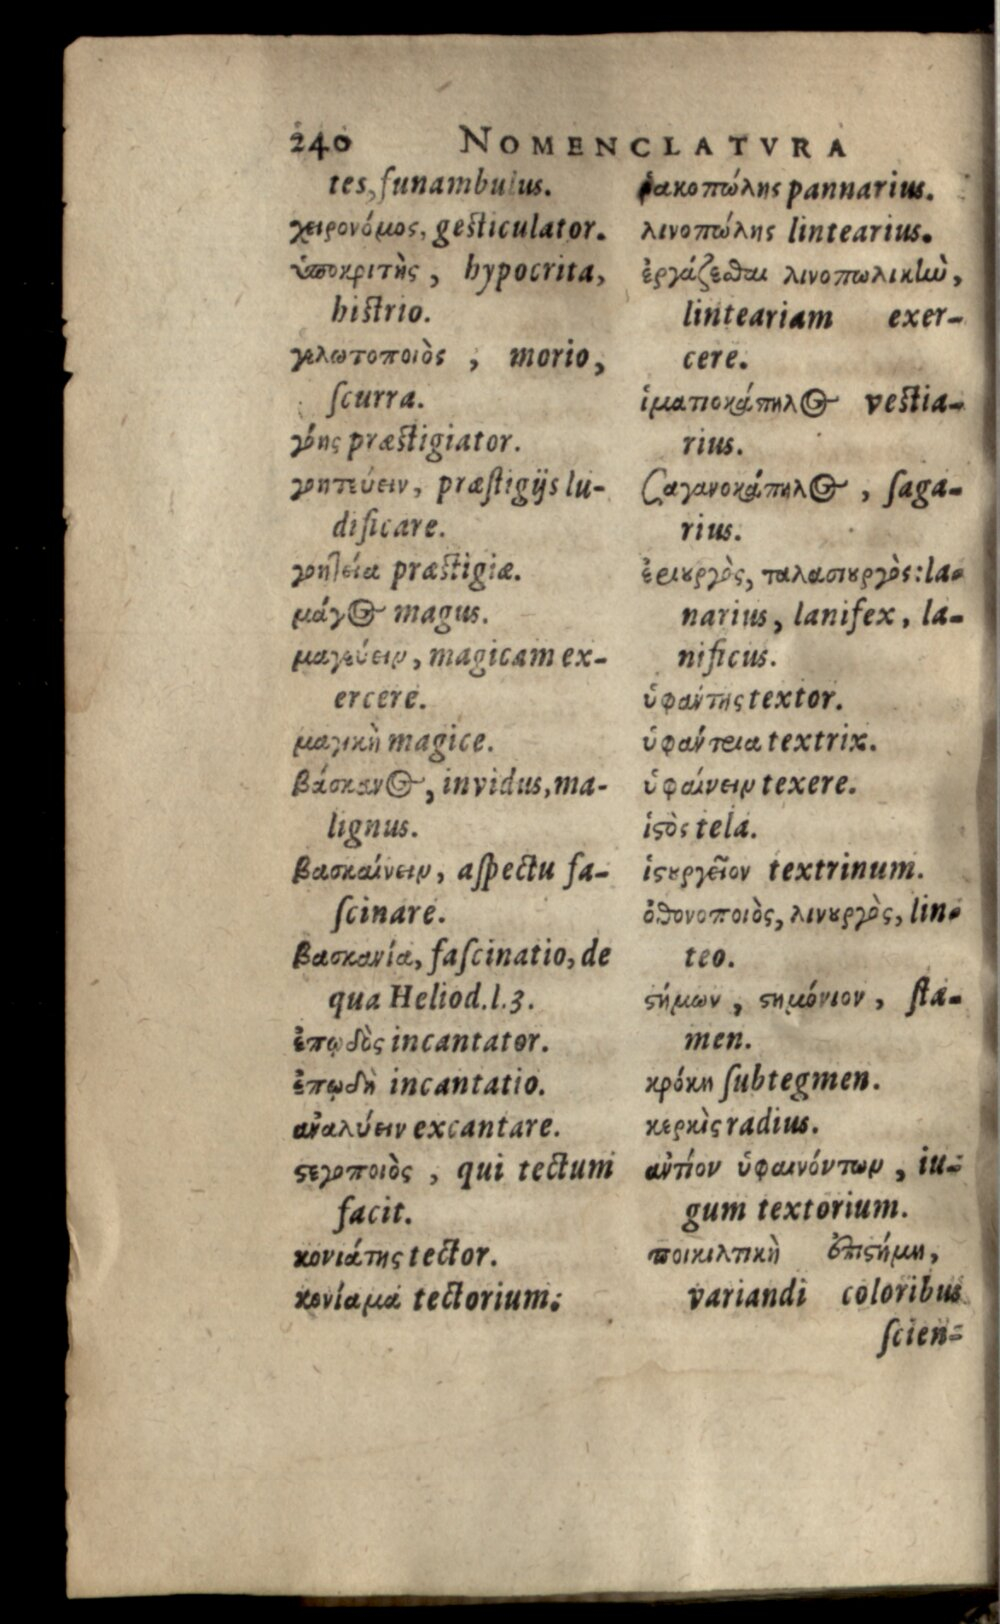 240 NOMENCLATVRA
tes, funambulus.
χειρονόμος, gesticulator.
ὑποκριτὴς, hypocrita,
histrio.
γελωτοποιὸς, morio,
ſcurra.
γόης præstigiator.
γοητεύειν, præſtigijs lu-
dificare.
γοητεία præstigiæ.
μάγος magus.
μαγεύειν, magicam ex-
ercere.
μαγικὴ magice.
βάσκανος, invidus, ma-
lignus.
βασκαίνειν, aſpectu fa-
ſcinare.
βασκανία, faſcinatio, de
qua Heliod. l. 3.
ἐπῳδὸς incantator.
ἐπῳδὴ incantatio.
ἀναλύειν excantare.
ϛεγοποιὸς, qui tectum
facit.
κονιάτης tector.
κονίαμα tectorium.
ῥακοπώλης pannarius.
λινοπώλης lintearius.
ἐργάζεσθαι λινοπωλικὴν,
linteariam exer-
cere.
ἱματιοκάπηλος vestia-
rius.
σαγανοκάπηλος, ſaga-
rius.
ἐριουργὸς, ταλασιουργὸς: la-
narius, lanifex, la-
nificus.
ὑφάντης textor.
ὑφάντεια textrix.
ὑφαίνειν texere.
ἱϛὸς tela.
ἱϛουργεῖον textrinum.
ὀθονοποιὸς, λινουργὸς, lin-
teo.
ϛήμων, ϛημόνιον, ſta-
men.
κρόκη ſubtegmen.
κερκὶς radius.
ἀντίον ὑφαινόντων, iu-
gum textorium.
ποικιλτικὴ ἐπιϛήμη,
variandi coloribus
ſcien-